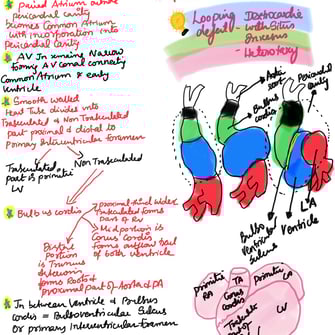 Paired Atrium outside
pericardial cavity
becomes Common Atrium
with incorporation into
Pericardial Cavity
AV Jn remains Narrow
forms AV canal connecty
Common Atrium & early
Ventricle
Smooth walled
Heart Tube divides into
Trabeculated & Non Trabeculated
part proximal & distal to
Primary Interventricular foramen
Trabeculated
part is primitive
LV
Non Trabeculated
Bulbus Cordis
proximal third
Trabeculated forms
part of RV
Mid portion is
Conus Cordis
forms outflow
of both ventricle
Distal
portion
is Truncus
Arteriosus
forms Roots &
proximal part of Aorta & PA
In between Ventricle & Bulbus
Cordis = Bulboventricular Sulcus
or primary Interventricular foramen
Looping
defect
- Dextrocardia
- with Situs
Inversus
- Heterotaxy
Aortic
Bulbus
Cordis
Pericardial
Cavity
LA
Ventricle
Bulbo
Ventricular
Sulcus
primitive
RA
TA
Conus
Cordis
Primitive
LA
Trabeculated
LV